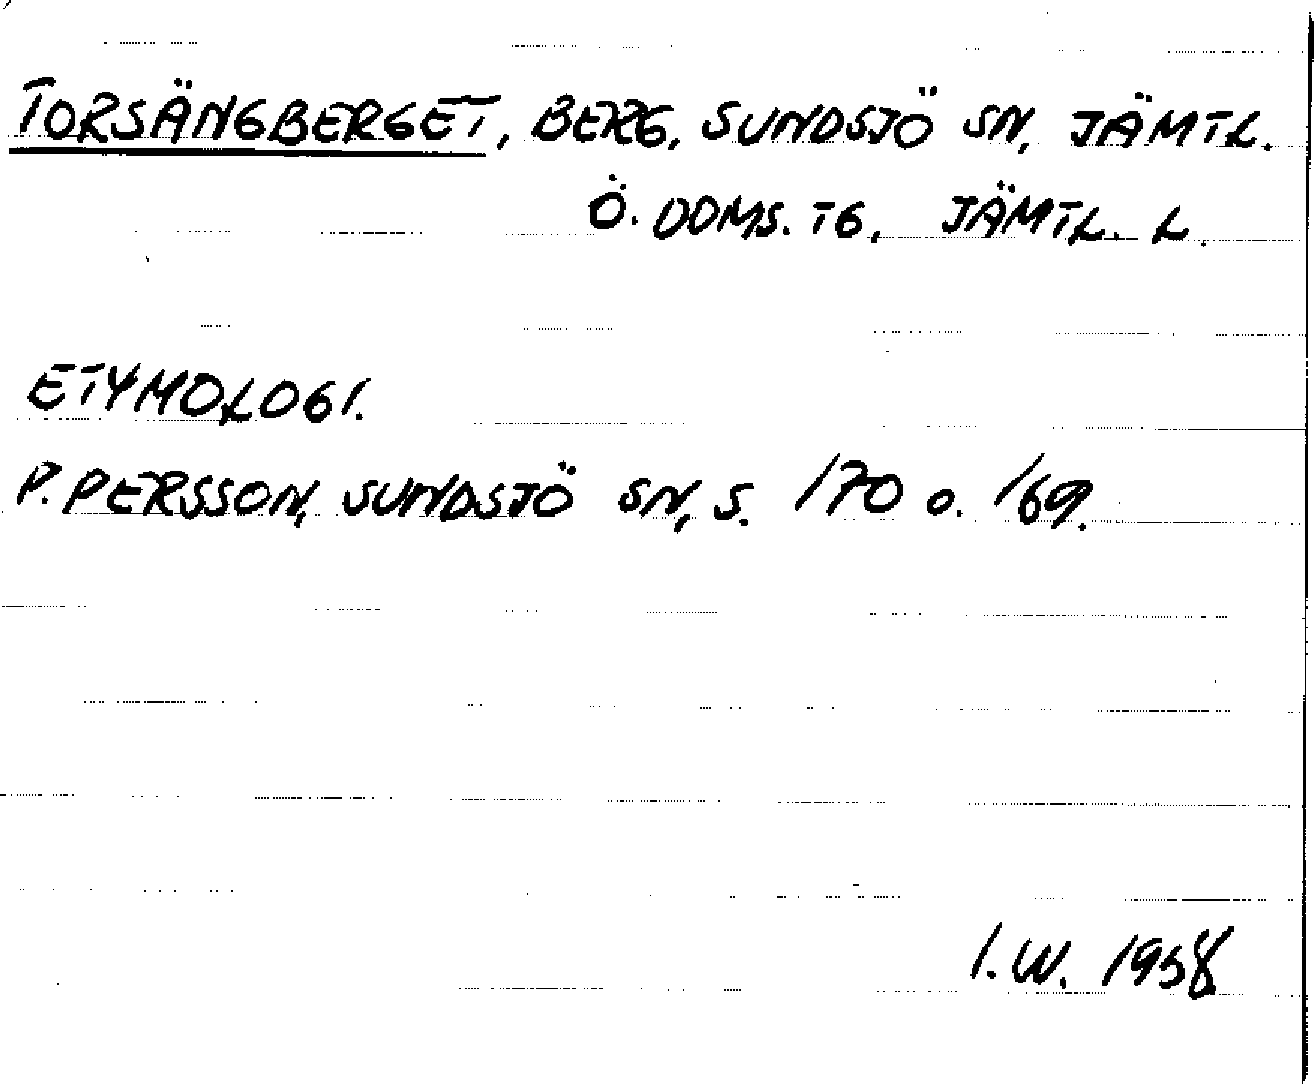 TORSÄNGBERGET, BERG, SUNDSJÖ SN, JÄMTL.
Ö. DOMS. TG, JÄMTL. L.
ETYMOLOGI.
P. PERSSON, SUNDSJÖ SN, S. 170 o. 169.
I.W. 1958